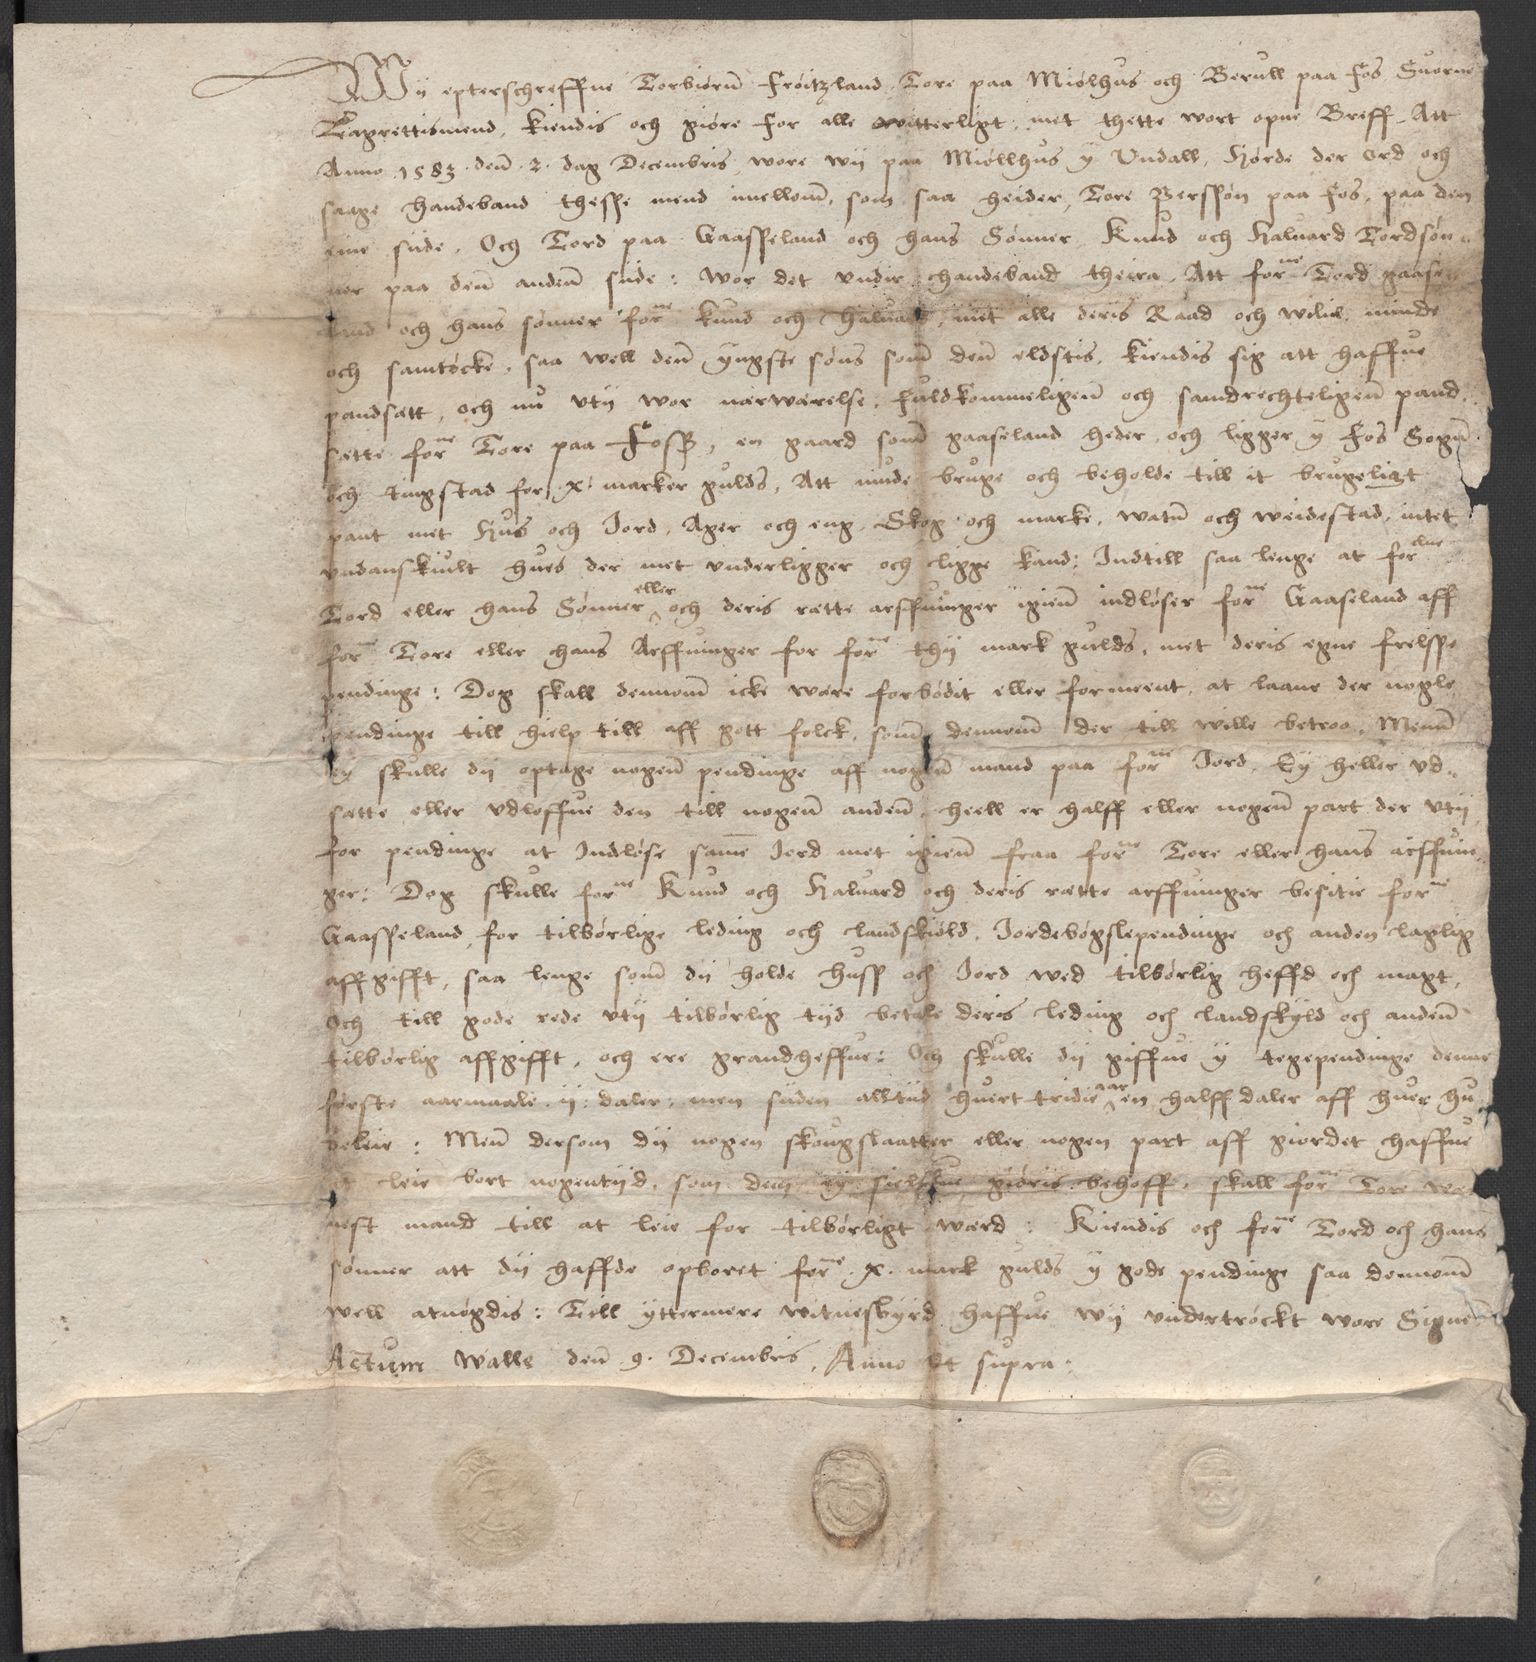 Wij epterschreffne Torbiørnn Frøitzland Tore paa Miølhus och Berull paa Fos Suorne
Lagrettismend, Kiendis och giøre for alle witterligt, met thette wort opne Breff, Att
Anno 1583 denn 2. dag Decembris wore wij paa Miøllhus ÿ Undall, Hørde der ord och
saage handeband thesse mend imellom, som saa heider, Tore Perssøn paa Fos, paa den
eine side, Och Tord paa Gaasseland och hans Sønner, Knud och Haluard Tordsøn
ner paa denn andenn siide: Wor det vndir handeband theira, Att forne Tord gaase
land och hans sønner forne Knud och Haluard, met alle deris Raad och wilie, minde
och samtøcke, saa well denn ÿngste søns som denn eldstis, Kiendis sig att haffue
pandsatt, och nu vtij wor nærwærelse, fuldkommeligenn och samdrechteligenn pand
sette forne Tore paa Foss, en gaard som gaaseland heder, och ligger ÿ Fos Sogn
och tingstad for x marker gulds, Att niude bruge och beholde till it brugeligt
pant met Hus och Jord, Ager och eng, Skog och marke, watnn och weidestad, intet
vndanskiult hues der met vnderligger och ligge kand: Indtill saa lenge at fordne
Tord eller hans Sønner eller och deris rætte arffuinger igienn indløser forne Gaaseland aff
forne Tore eller hans Arffuinger for forne thij mark gulds, met deris egne frelsse
pendinge: Dog skall dennom icke wære forbødit eller forment, at laane der nogle
pendinge till hielp till aff gott folck, som dennom der till wille betroo, Menn
eÿ skulle dij optage nogenn pendinge aff nogenn mand paa forne Jord, Eÿ heller vd
sætte eller vdloffue den till nogenn andenn heell er halff eller nogenn part der vtij
for pendinge at Indløse samme Jord met igienn fraa forne Tore eller hans arffuin
ger: Dog skulle forne Knud och Haluard och deris rætte arffuinger besitie forne
Gaasseland, for tilbørlige leding och landskiøld, Jordebøgslependinge och anden laglig
affgifft, saa lenge som dij holde huss och Jord wed tilbørlig heffd och magt,
Och till gode rede vtij tilbørlig tijd betale deris leding och landskyld och andenn
tilbørlig affgifft, och ere grandheffue: Och skulle dij giffue ÿ tegependinge denne
første aarmaale ij daler, men siiden alltiid huert tridie aar en halff daler aff huer hu
deleie: Menn dersom dij nogen skougslaatter eller nogen part aff giordet haffue
at leie bort nogentijd, som dem eÿ sielffue giøris behoff, skall forne Tore wære
nest mand till at leie for tilbørligt wærd: Kiendis och forne Tord och hans
sønner att dij haffde opboret forne x mark gulds ÿ gode pendinge saa dennom
well atnøgdis: Till ÿttermere witnesbyrd haffue wij vndertrøckt wore Signe
Actum Walle denn 9. Decembris, Anno ut supra: